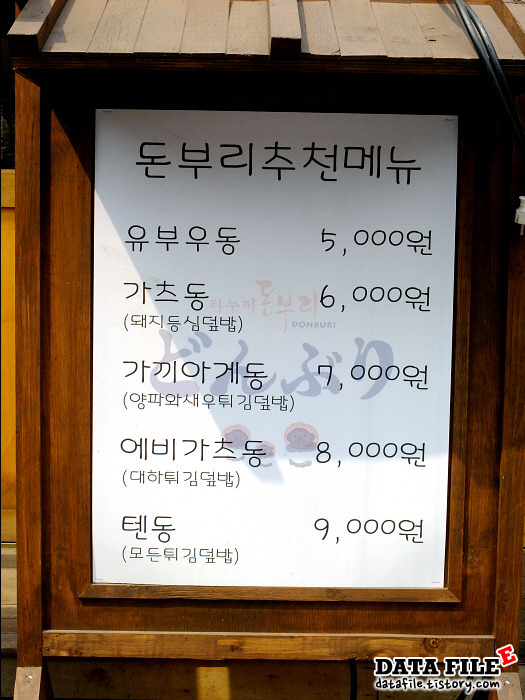 돈부리추천메뉴
유부우동 5,000원
가츠동 6,000원
(돼지등심덮밥)
돈부리
DONBURI
どんぶり
가끼아게동 7,000원
(양파와새우튀김덮밥)
에비가츠동 8,000원
(대하튀김덮밥)
텐동 9,000원
(모든튀김덮밥)
DATA FILE E
datafile.tistory.com